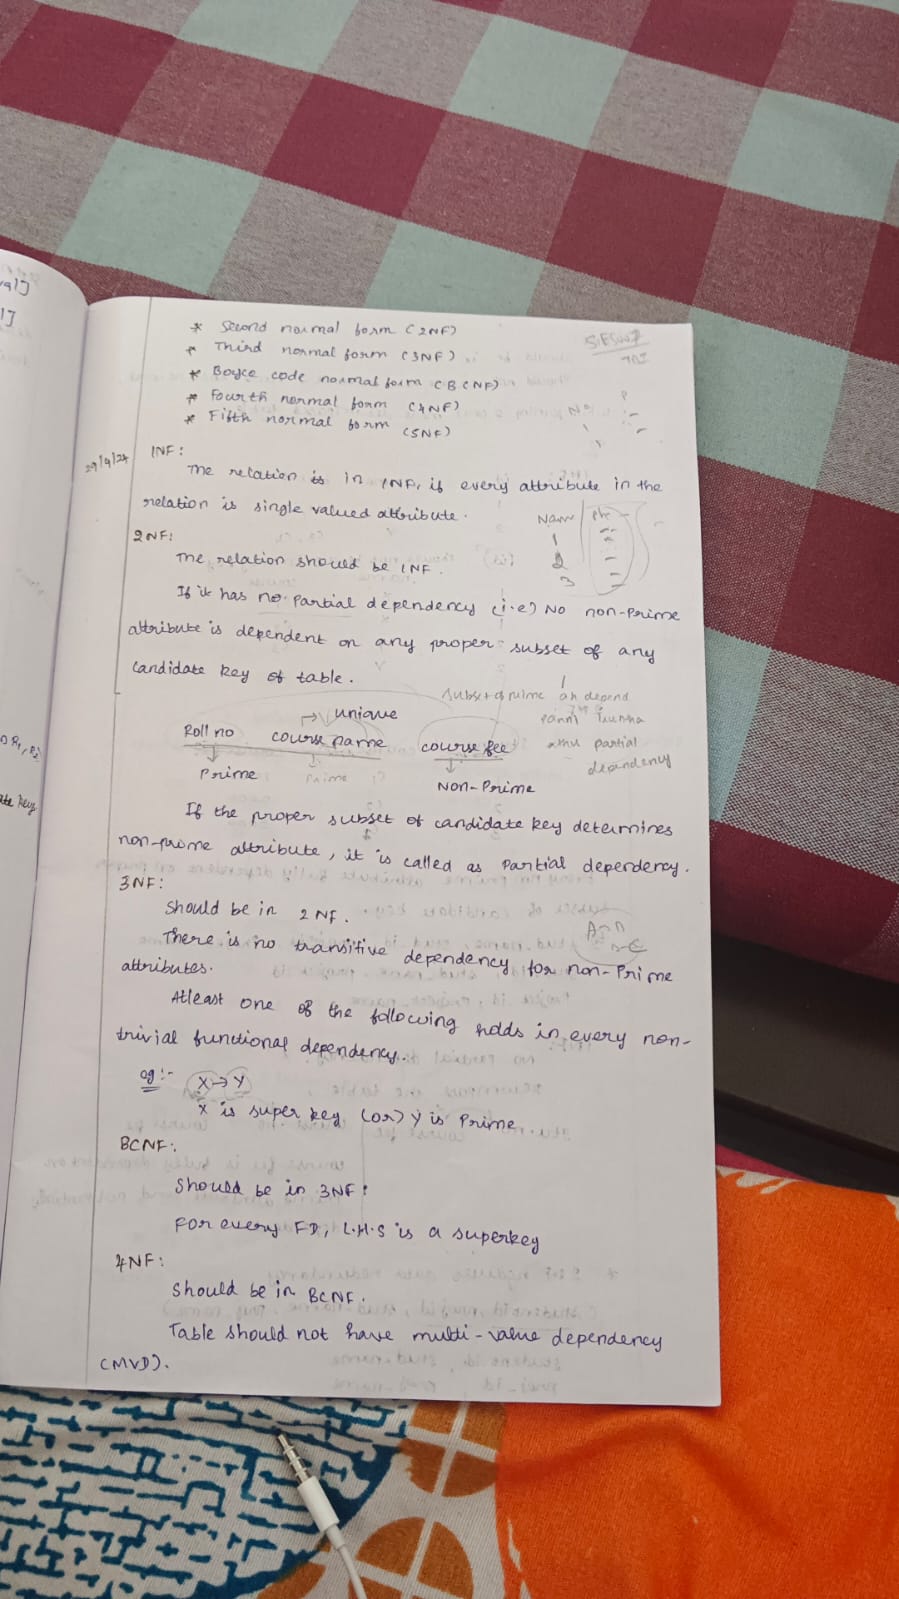 * Second normal form (2NF)
* Third normal form (3NF)
* Boyce code normal form (BCNF)
* Fourth normal form (4NF)
* Fifth normal form (5NF)
29/9/24
1NF:
The relation is in 1NF, if every attribute in the
relation is single valued attribute.
Name Ph
1
2
3
2NF:
The relation should be 1NF.
If it has no partial dependency (i.e) No non-prime
attribute is dependent on any proper subset of any
candidate key of table.
subset of prime ah depend
panni
amu partial
dependency
unique
Roll no course name course fee
Prime Prime Non-Prime
If the proper subset of candidate key determines
non-prome attribute, it is called as Partial dependency.
3NF:
Should be in 2NF.
There is no transitive dependency for non-Prime
attributes.
Atleast one of the following holds in every non-
trivial functional dependency.
eg:- X→Y
X is super key (or) Y is Prime.
BCNF:
Should be in 3NF:
For every FD, L.H.S is a superkey
4NF:
Should be in BCNF.
Table should not have multi-value dependency
(MVD).